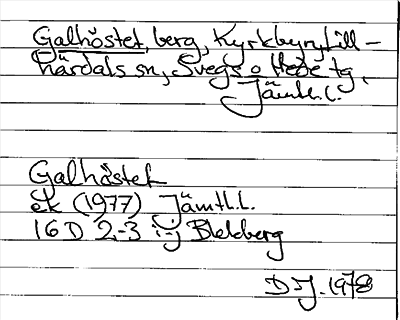 Galhåstet, berg, Kyrkbyn, Lill-
härdals sn, Svegs o Hede tg,
Jämtl. l.
Galhåstet
ek (1977) Jämtl.l.
16D 2-3 i-j Blekberg
DJ. 1978